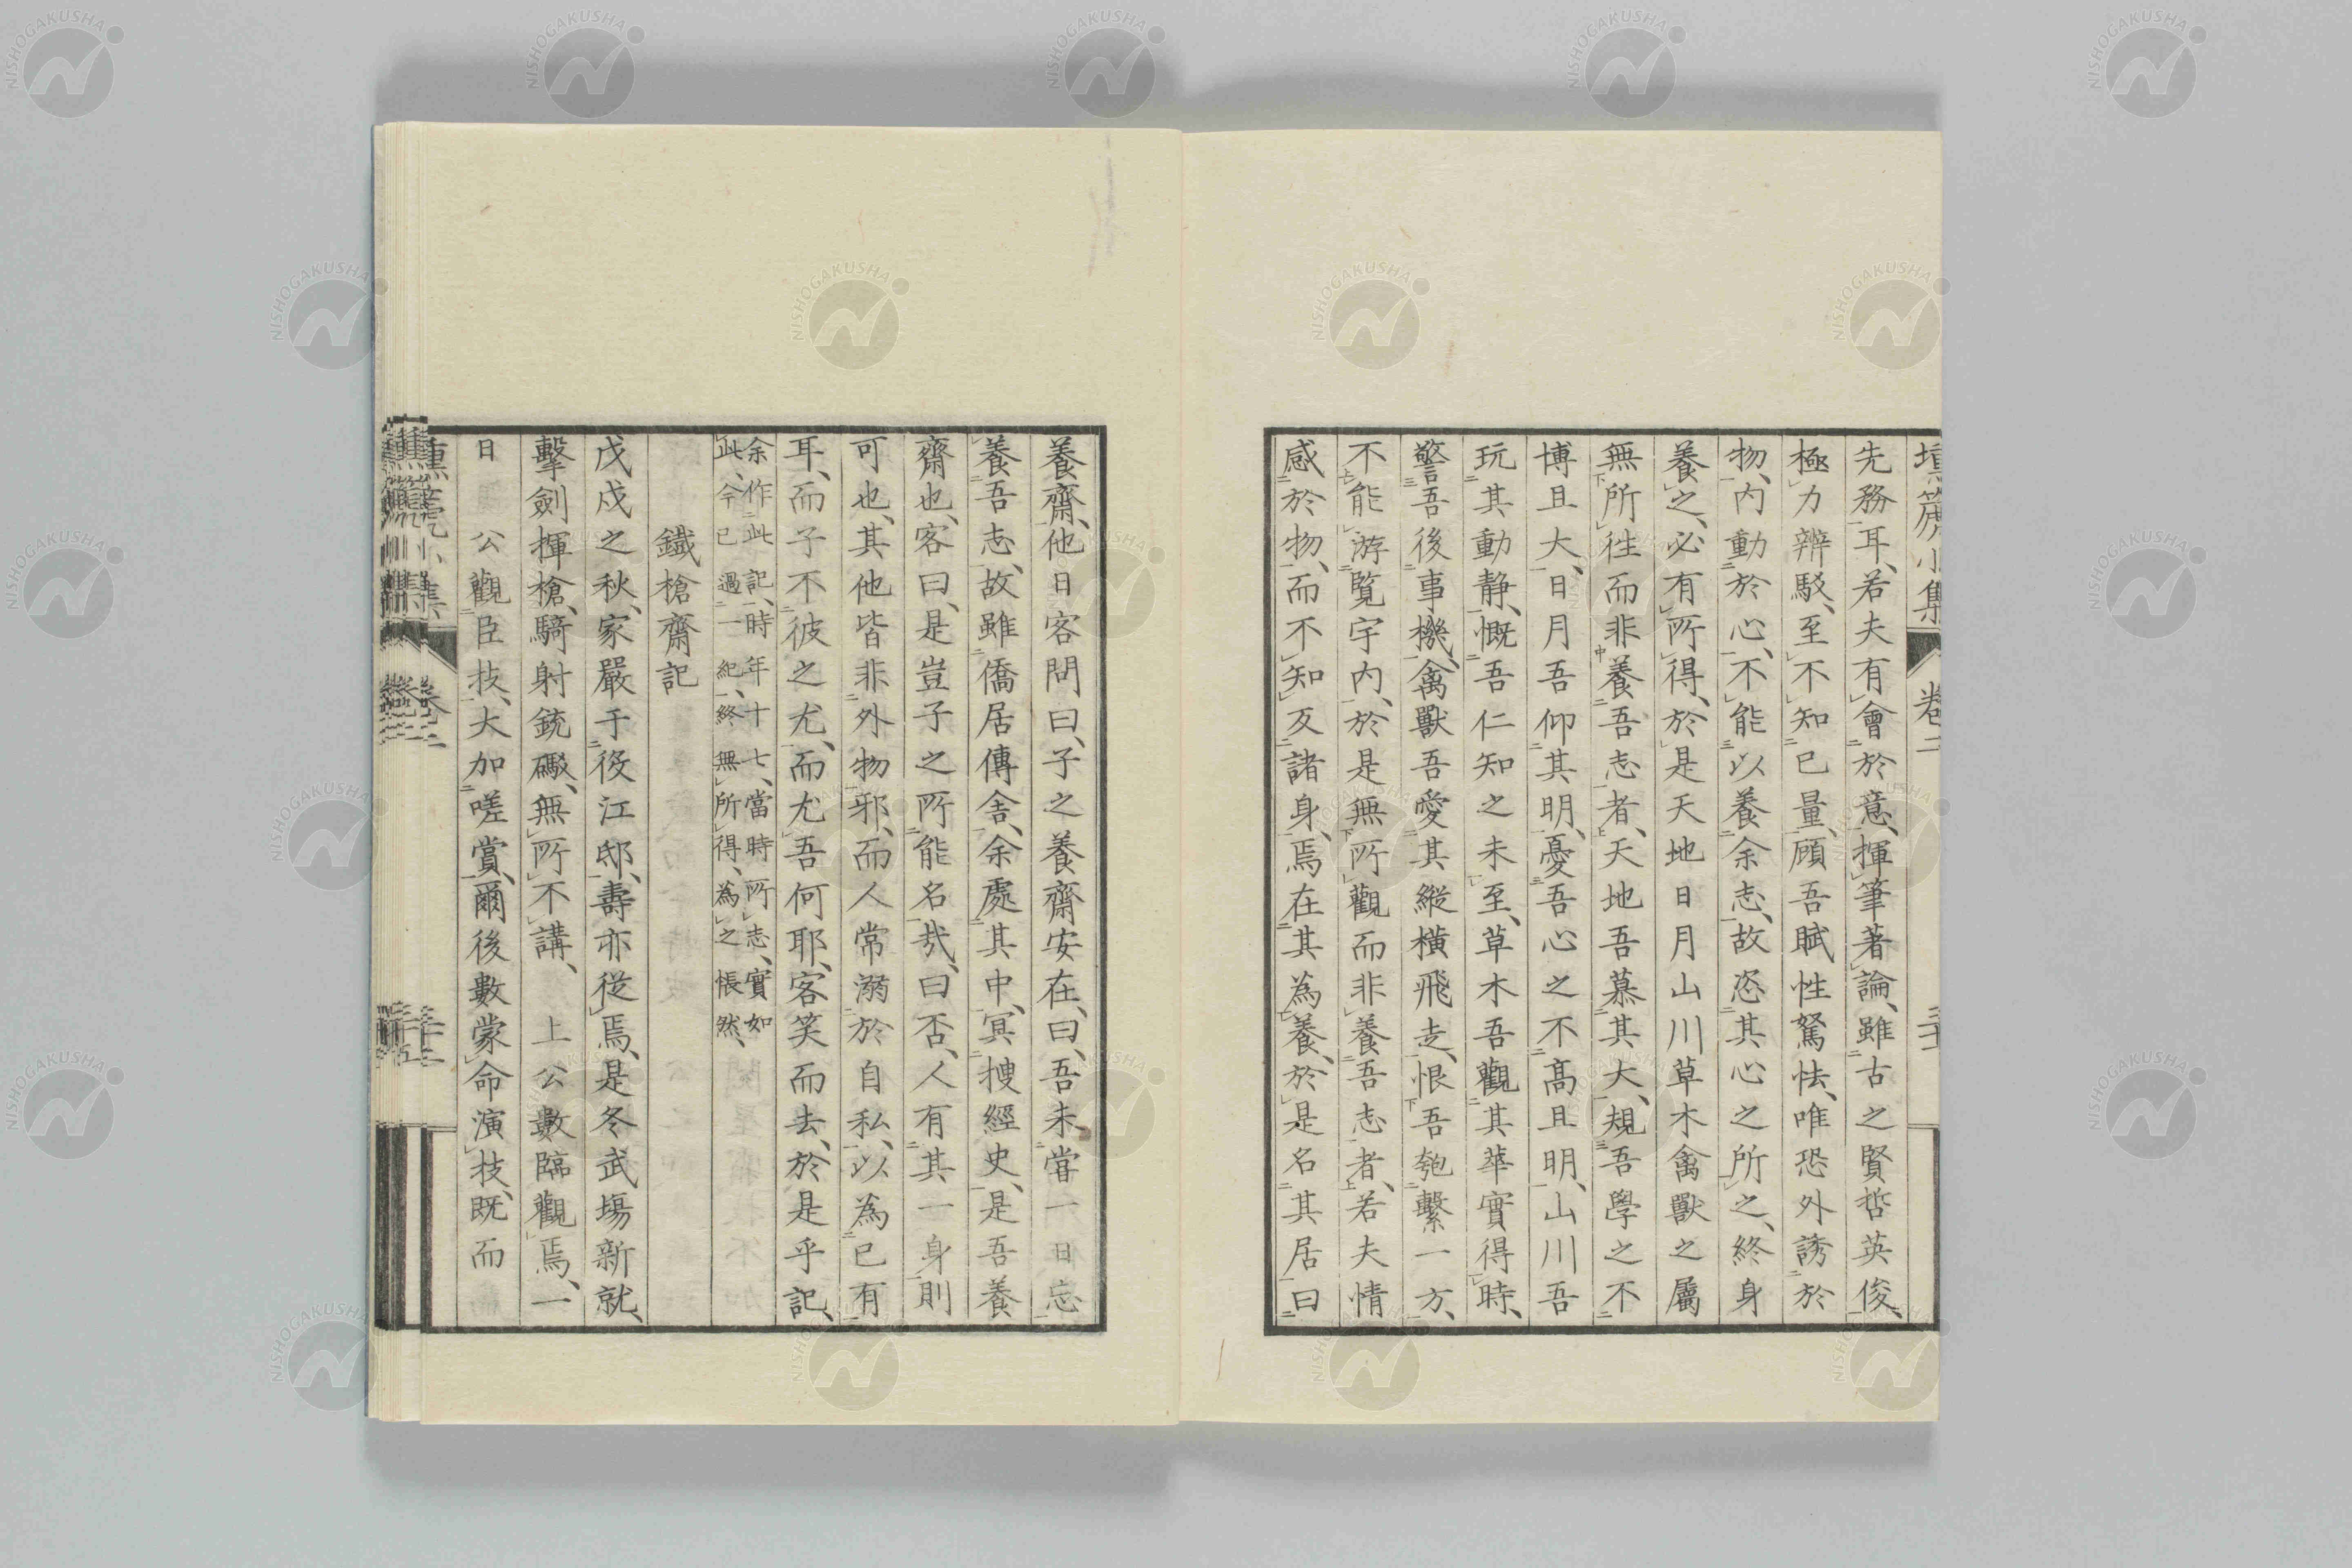 壎篪小集 卷二
先務耳、若夫有會於意、揮筆著論、雖古之賢哲英俊、
極力辨駁、至不知已量、顧吾賦性駑怯、唯恐外誘於
物、內動於心、不能以養余志、故恣其心之所之、終身
養之、必有所得、於是天地日月山川草木禽獸之屬
無所往而非養吾志者、天地吾慕其大、規吾學之不
博且大、日月吾仰其明、憂吾心之不高且明、山川吾
玩其動靜、慨吾仁知之未至、草木吾觀其華實得時、
警吾後事機、禽獸吾愛其縱橫飛走、恨吾匏繫一方、
不能游覽宇內、於是無所觀而非養吾志者、若夫情
感於物、而不知反諸身、焉在其為養、於是名其居曰
養齋、他日客問曰、子之養齋安在、曰、吾未嘗一日忘
養吾志、故雖僑居傳舍、余處其中、冥搜經史、是吾養
齋也、客曰、是豈子之所能名哉、曰否、人有其一身則
可也、其他皆非外物邪、而人常溺於自私、以為已有
耳、而子不彼之尤、而尤吾何耶、客笑而去、於是乎記、
余作此記、時年十七、當時所志、實如
此、今已過一紀、終無所得、為之悵然、
鐵槍齋記
戊戌之秋、家嚴于役江邸、壽亦從焉、是冬武場新就、
擊劍揮槍、騎射銃礮、無所不講、 上公數臨觀焉、一
日 公觀臣技、大加嗟賞、爾後數蒙命演技、既而